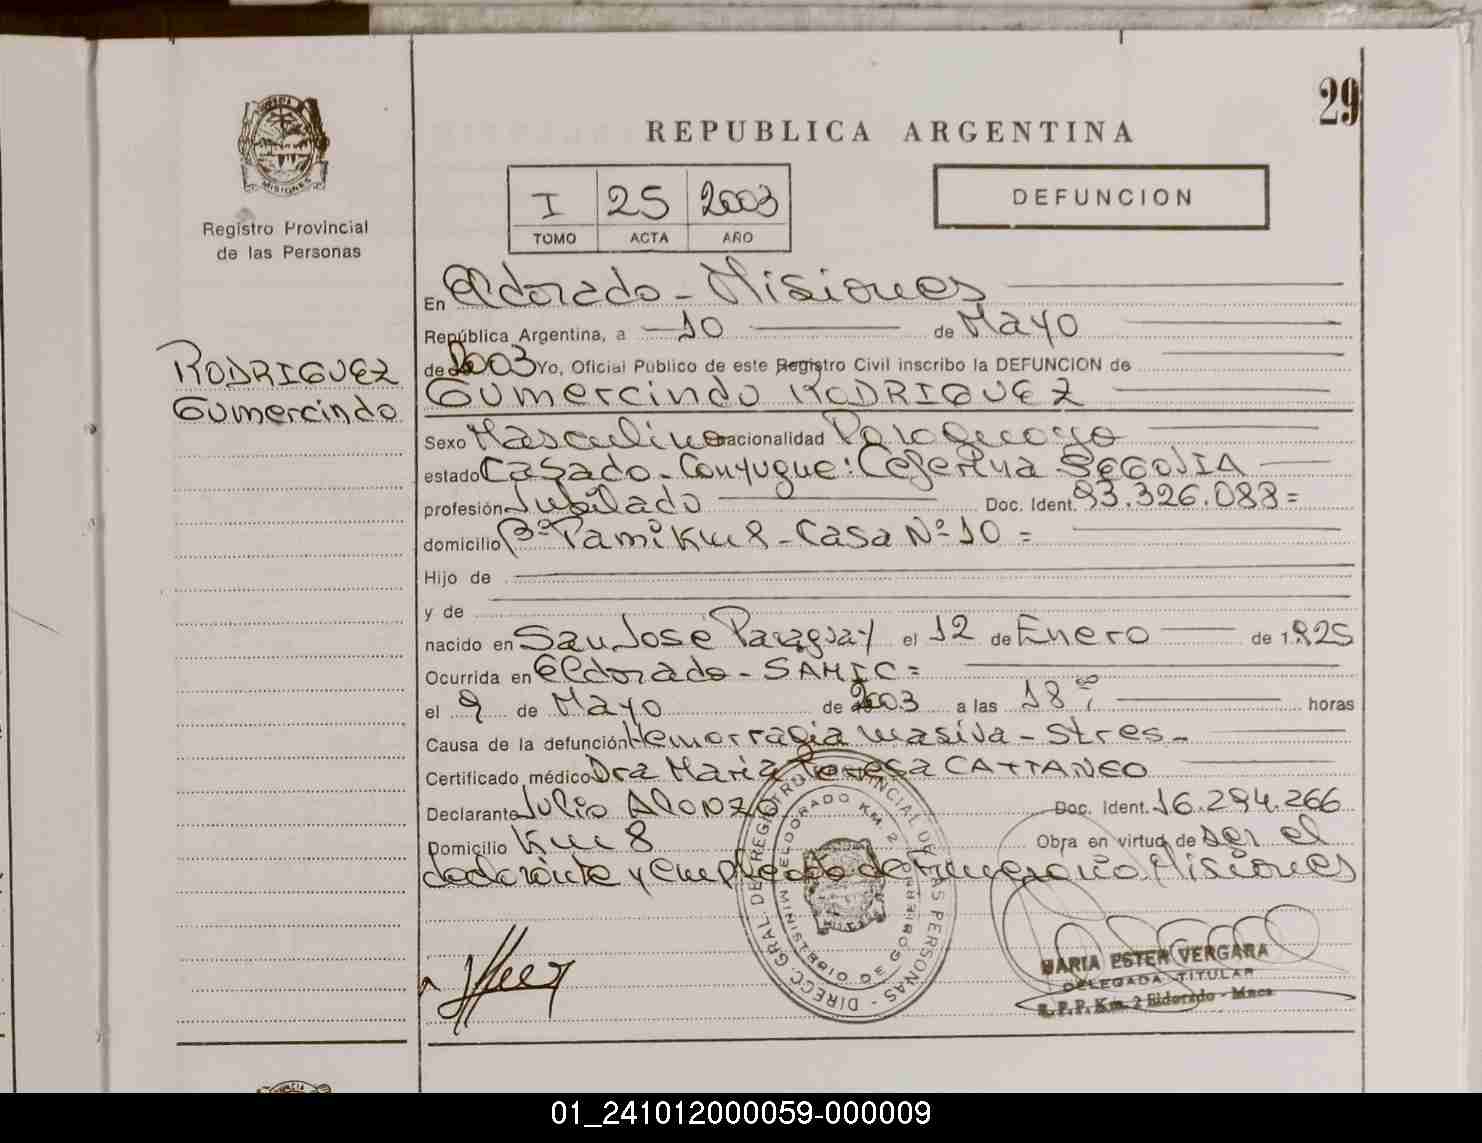 29
REPUBLICA ARGENTINA
MISIONES
Registro Provincial
de las Personas
I 25 2003
TOMO ACTA AÑO
DEFUNCION
RODRIGUEZ
Gumercindo
En Eldorado - Misiones
República Argentina, a 10 de Mayo
de 2003 Yo, Oficial Público de este Registro Civil inscribo la DEFUNCION de
Gumercindo RODRIGUEZ
Sexo Masculino nacionalidad Paraguaya
estado Casado - Conyugue: Ceferina SEGOVIA
profesión Jubilado Doc. Ident. 93.326.088 =
domicilio Bº Pami Km 8 - Casa Nº 10 =
Hijo de
y de
nacido en San José Paraguay el 12 de Enero de 1.925
Ocurrida en Eldorado - SAMIC =
el 9 de Mayo de 2003 a las 18 horas
Causa de la defunción Hemorragia masiva - Stres -
Certificado médico Dra Maria Teresa CATTANEO
Declarante Julio Alonzo Doc. Ident. 16.294.266
Domicilio Km 8 Obra en virtud de ser el
declarante y empleado de Funeraria Misiones
DIRECC. GRAL. DE REGISTRO PROVINCIAL DE LAS PERSONAS -
MINISTERIO DE GOBIERNO
ELDORADO KM. 2
MARIA ESTER VERGARA
DELEGADA TITULAR
R.P.P. Km. 2 Eldorado - Mnes
01_241012000059-000009